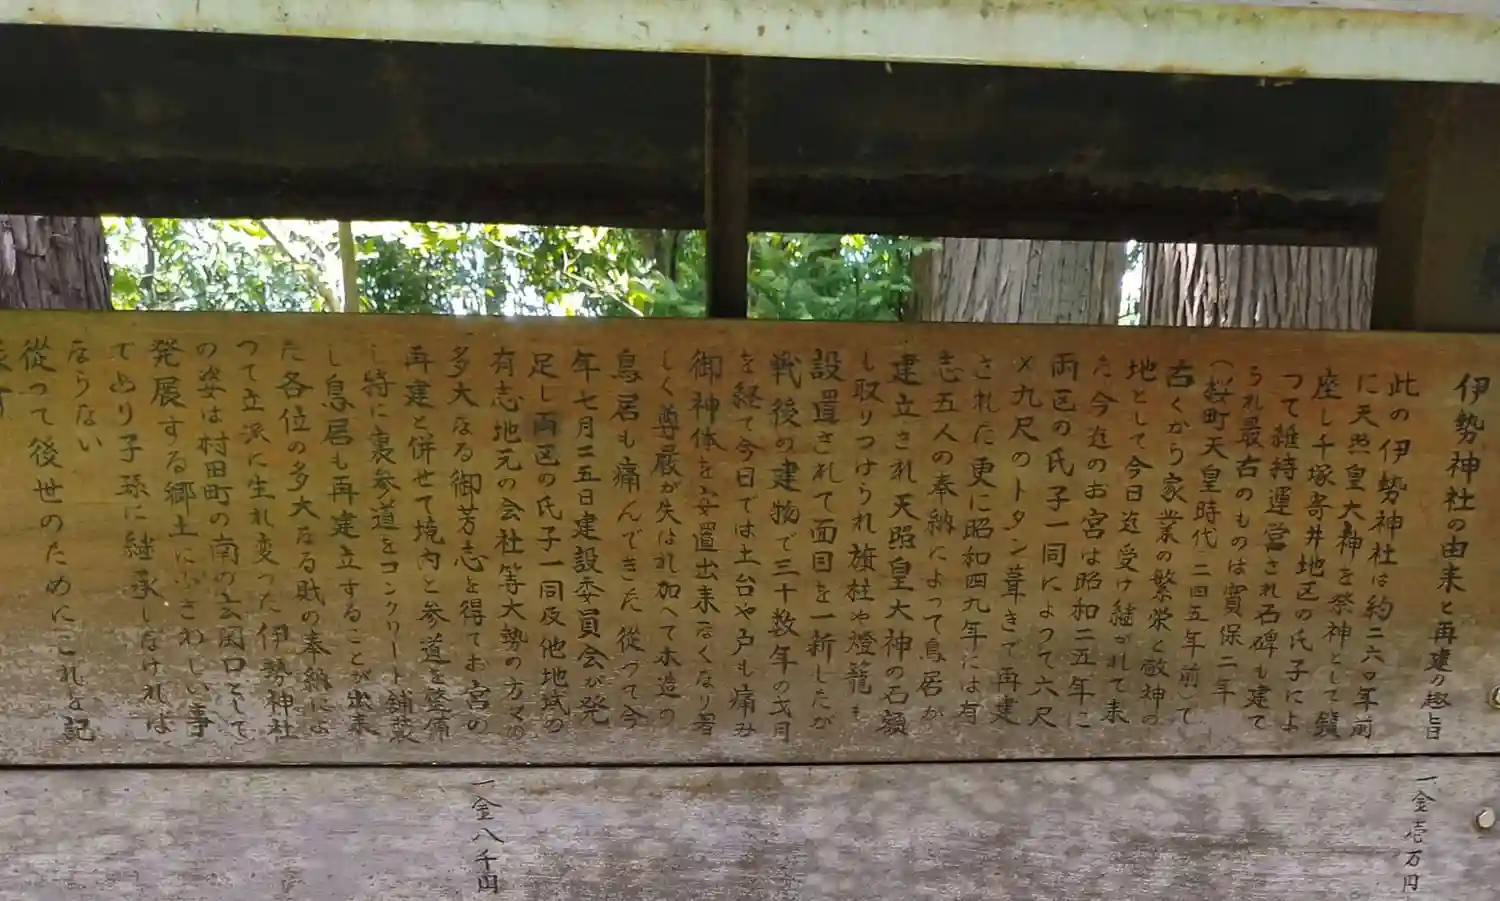 伊勢神社の由来と再建の趣旨
此の伊勢神社は約二六〇年前
に天照皇大神を祭神として鎮
座し千塚寄井地区の氏子によ
つて維持運営され石碑も建て
られ最古のものは寛保二年
（桜町天皇時代二四五年前）で
古くから家業の繁栄と敬神の
地として今日迄受け継がれて来
た今迄のお宮は昭和二五年に
両区の氏子一同によつて六尺
×九尺のトタン葺きで再建
された更に昭和四九年には有
志五人の奉納によって鳥居が
建立され天照皇大神の石額
し取りつけられ旗柱や燈籠も
設置されて面目を一新したが
戦後の建物で三十数年の才月
を経て今日では土台や戸も痛み
御神体を安置出来なくなり著
しく尊厳が失はれ加へて木造の
鳥居も痛んできた従つて今
年七月二五日建設委員会が発
足し両区の氏子一同及他地域の
有志地元の会社等大勢の方々の
多大なる御芳志を得てお宮の
再建と併せて境内と参道を整備
し特に裏参道をコンクリート舗装
し鳥居も再建立することが出来
た各位の多大なる財の奉納によ
つて立派に生れ変つた伊勢神社
の姿は村田町の南の玄関口として
発展する郷土にふさわしい事
であり子孫に継承しなければ
ならない
従つて後世のためにこれを記
一金壱万円
一金八千円